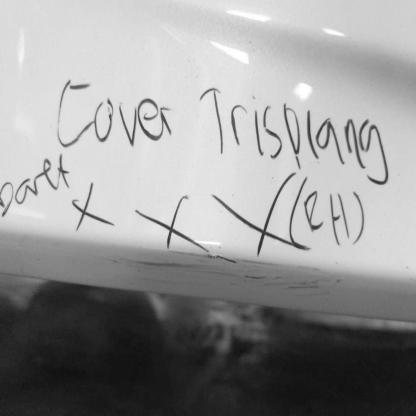 Cover Trisplang
Baret x x X (RH)